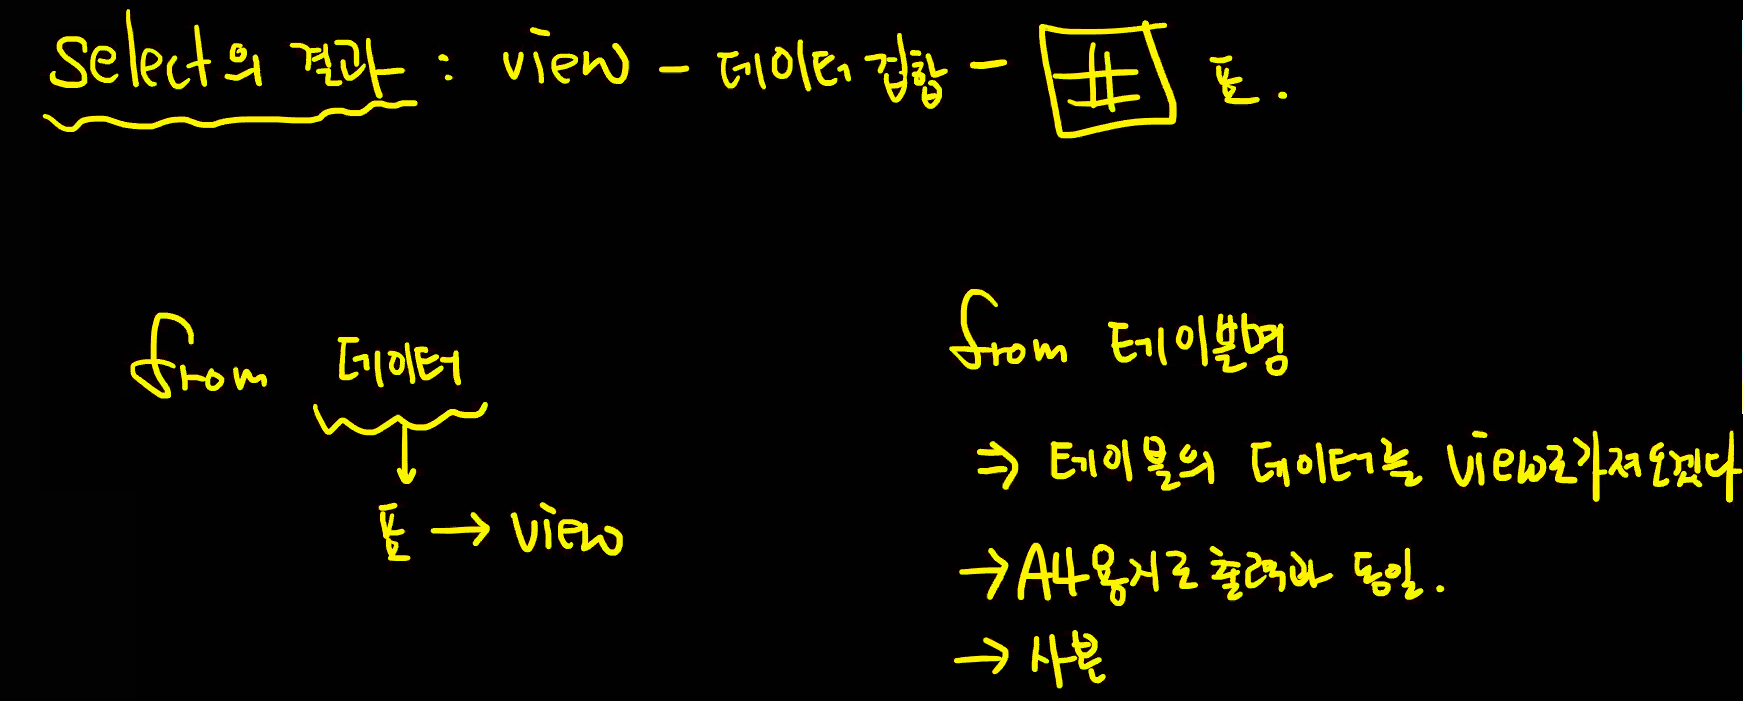 select의 결과 : view - 데이터 집합 - 표.
from 데이터
표 → view
from 테이블명
⇒ 테이블의 데이터를 view로 가져오겠다
→ A4용지로 출력과 동일.
→ 사본